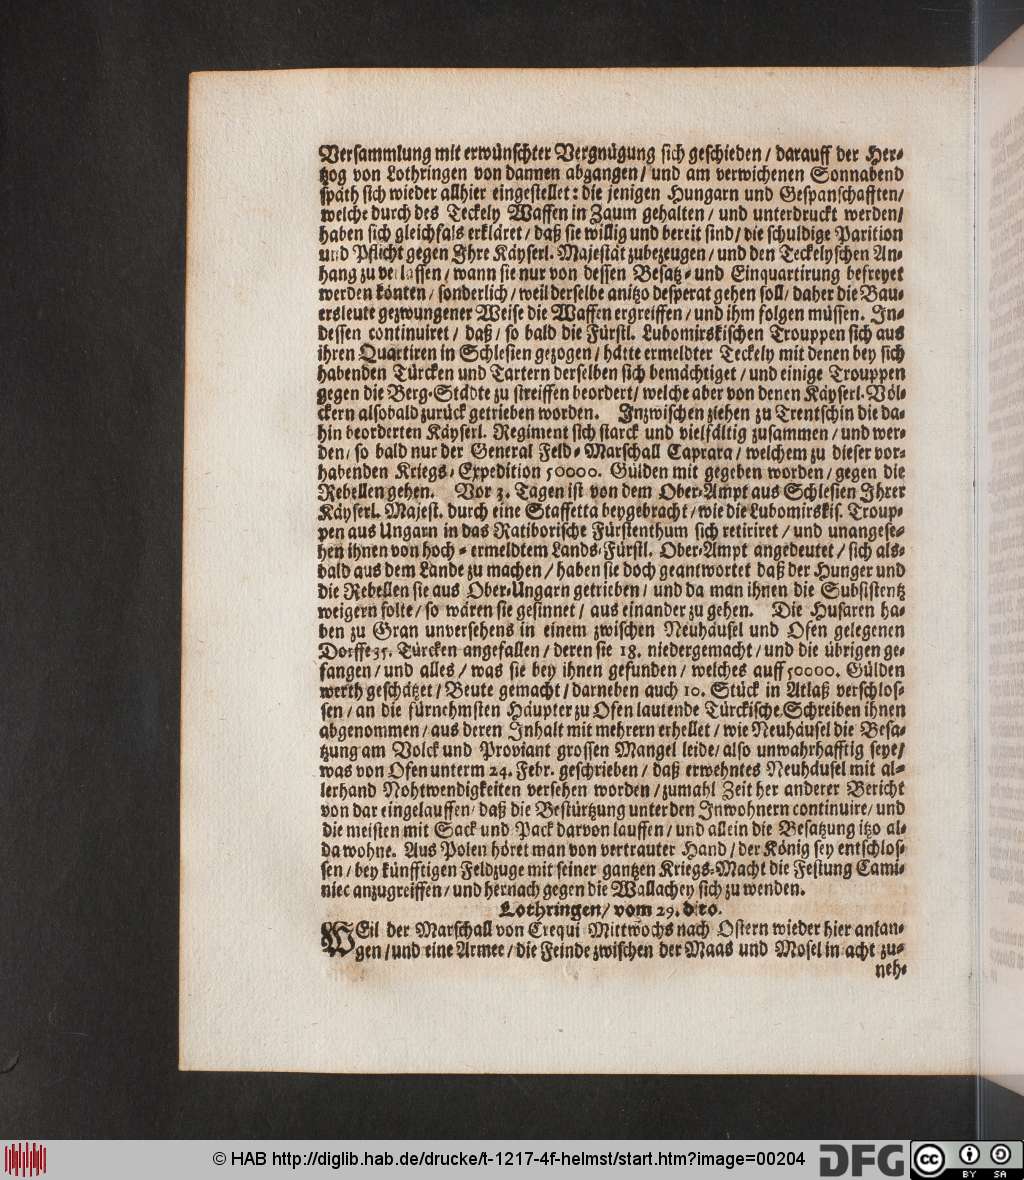 Versammlung mit erwünschter Vergnügung sich geschieden / darauff der Her-
tzog von Lothringen von dannen abgangen / und am verwichenen Sonnabend
späth sich wieder allhier eingestellet: die jenigen Hungarn und Gespanschafften /
welche durch des Teckely Waffen in Zaum gehalten / und unterdruckt werden /
haben sich gleichfals erkläret / daß sie willig und bereit sind / die schuldige Parition
und Pflicht gegen Ihre Käyserl. Majestät zubezeugen / und den Teckelyschen An-
hang zu verlassen / wann sie nur von dessen Besatz- und Einquartirung befreyet
werden könten / sonderlich / weil derselbe anitzo desperat gehen soll / daher die Bau-
ersleute gezwungener Weise die Waffen ergreiffen / und ihm folgen müssen. In-
dessen continuiret / daß / so bald die Fürstl. Lubomirskischen Trouppen sich aus
ihren Quartiren in Schlesien gezogen / hätte ermeldter Teckely mit denen bey sich
habenden Türcken und Tartern derselben sich bemächtiget / und einige Trouppen
gegen die Berg-Städte zu streiffen beordert / welche aber von denen Käyserl. Völ-
ckern alsobald zurück getrieben worden. Inzwischen ziehen zu Trentschin die da-
hin beorderten Käyserl. Regiment sich starck und vielfältig zusammen / und wer-
den / so bald nur der General Feld-Marschall Caprara / welchem zu dieser vor-
habenden Kriegs-Expedition 50000. Gülden mit gegeben worden / gegen die
Rebellen gehen. Vor 3. Tagen ist von dem Ober-Ampt aus Schlesien Ihrer
Käyserl. Majest. durch eine Staffetta beygebracht / wie die Lubomirskis. Troup-
pen aus Ungarn in das Ratiborische Fürstenthum sich retiriret / und unangese-
hen ihnen von hoch-ermeldtem Lands-Fürstl. Ober-Ampt angedeutet / sich als-
bald aus dem Lande zu machen / haben sie doch geantwortet daß der Hunger und
die Rebellen sie aus Ober-Ungarn getrieben / und da man ihnen die Subsistentz
weigern solte / so wären sie gesinnet / aus einander zu gehen. Die Husaren ha-
ben zu Gran unversehens in einem zwischen Neuhäusel und Ofen gelegenen
Dorffe 35. Türcken angefallen / deren sie 18. niedergemacht / und die übrigen ge-
fangen / und alles / was sie bey ihnen gefunden / welches auff 50000. Gülden
werth geschätzet / Beute gemacht / darneben auch 10. Stück in Atlaß verschlos-
sen / an die fürnehmsten Häupter zu Ofen lautende Türckische Schreiben ihnen
abgenommen / aus deren Inhalt mit mehrern erhellet / wie Neuhäusel die Besa-
tzung am Volck und Proviant grossen Mangel leide / also unwahrhafftig seye /
was von Ofen unterm 24. Febr. geschrieben / daß erwehntes Neuhäusel mit al-
lerhand Nohtwendigkeiten versehen worden / zumahl Zeit her anderer Bericht
von dar eingelauffen / daß die Bestürtzung unter den Inwohnern continuire / und
die meisten mit Sack und Pack darvon lauffen / und allein die Besatzung itzo al-
da wohne. Aus Polen höret man von vertrauter Hand / der König sey entschlos-
sen / bey künfftigen Feldzuge mit seiner gantzen Kriegs-Macht die Festung Cami-
niec anzugreiffen / und hernach gegen die Wallachey sich zu wenden.
Lothringen / vom 29. dito.
WEil der Marschall von Crequi Mittwochs nach Ostern wieder hier anlan-
gen / und eine Armee / die Feinde zwischen der Maas und Mosel in acht zu-
neh-
© HAB http://diglib.hab.de/drucke/t-1217-4f-helmst/start.htm?image=00204
DFG
cc BY SA